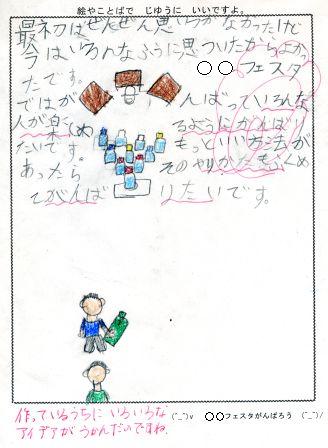 絵やことばで じゆうに いいですよ。
最初はぜんぜん思いつかなかったけど
今はいろんなふうに思いついたがらよかっ
たです。 ○○フェスタ
ではが んばっていろんな
人が楽しめ るようにがんばり
たいです。 もっといい方法が
あったら そのやりかたもふくめ
てがんば りたいです。
作っているうちにいろいろな
アイデアがうかんだのですね。
(^_^)v ○○フェスタがんばろう (^_^)/